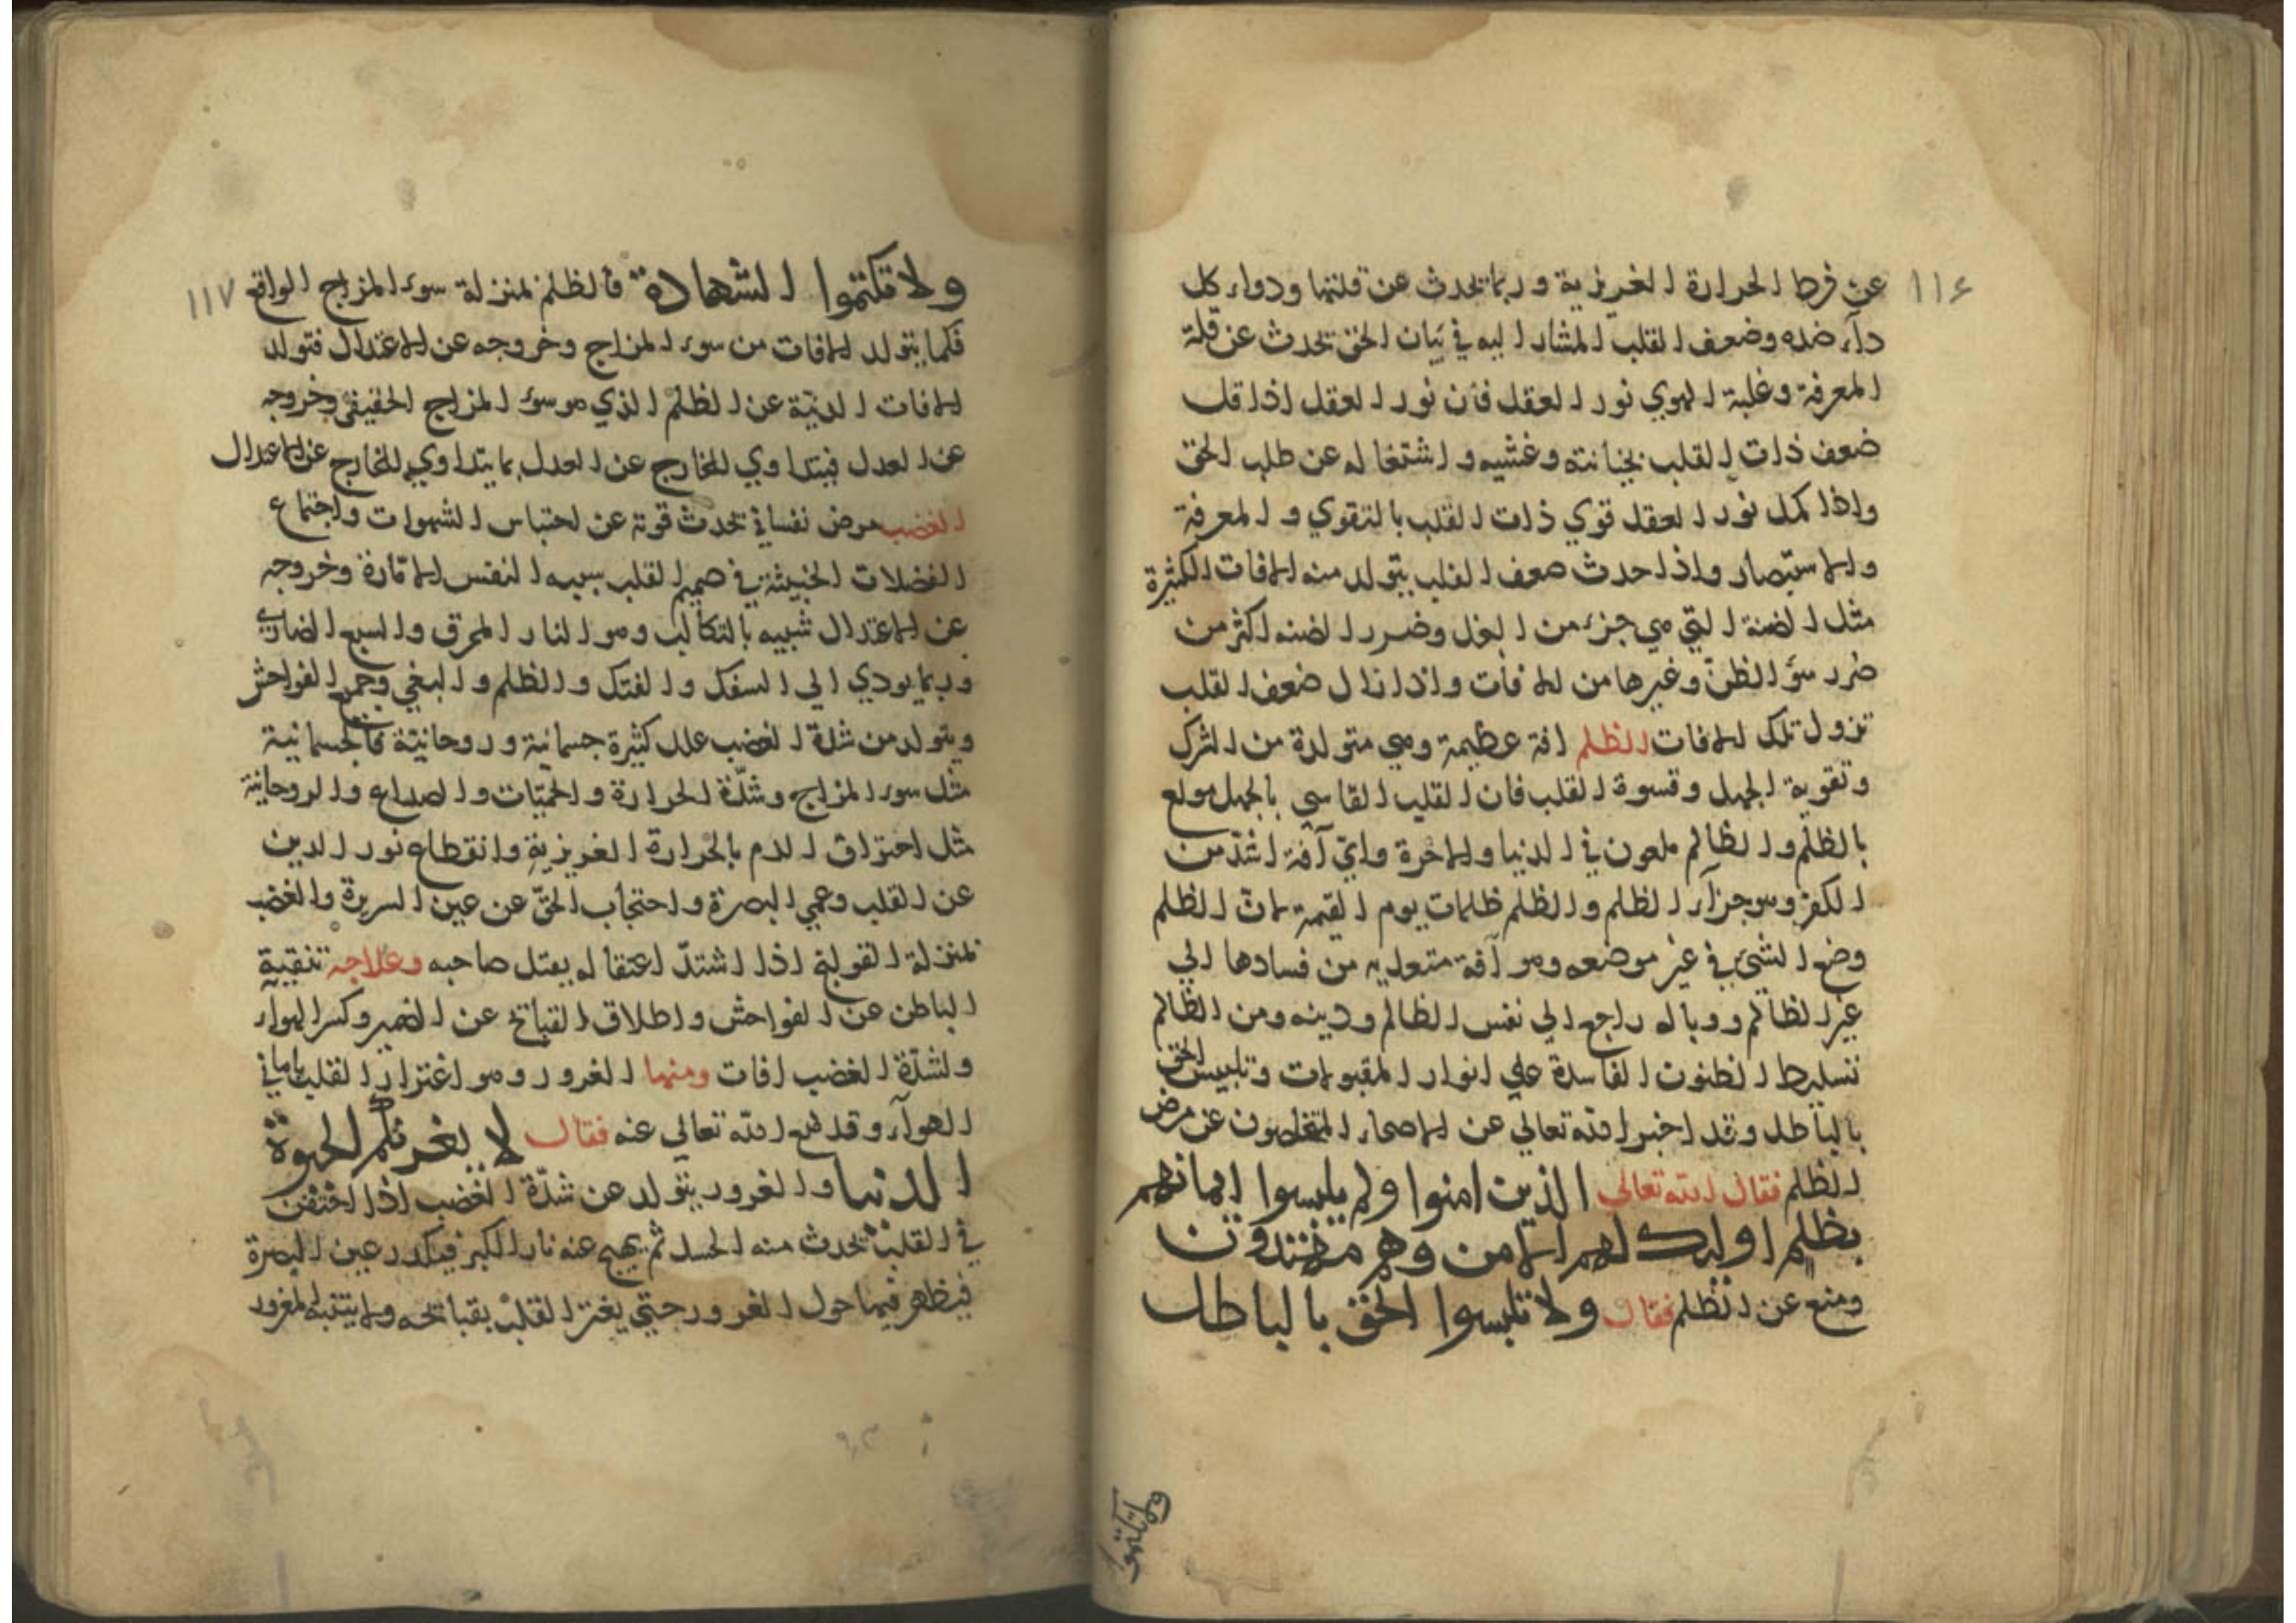 ١١٦
عن فرط الحرارة الغريزية وربما تحدث عن قلتها ودواء كل
داء ضده وضعف القلب المشار اليه في بيان الحق تحدث عن قلة
المعرفة وغلبة الهوي نور العقل فان نور العقل اذا قل
ضعف ذات القلب بخيانته وغشيه واشتغاله عن طلب الحق
واذا كمل نور العقل قوي ذات القلب بالتقوي والمعرفة
والاستبصار واذا حدث ضعف القلب يتولد منه الافات الكثيرة
مثل الضنة التي هي جزء من البخل وضرر الضنه اكثر من
ضرر سؤ الظن وغيرها من الافات واذا زال ضعف القلب
تزول تلك الافات الظلم افة عظيمة وهي متولدة من الشرك
وتقوية الجهل وقسوة القلب فان القلب القاسي بالجهل مولع
بالظلم والظالم ملعون في الدنيا والاخرة واي آفة اشد من
الكفر وهو جزآء الظلم والظلم ظلمات يوم القيمة لان الظلم
وضع الشيء في غير موضعه وهو آفة متعديه من فسادها الي
غير الظالم ووباله راجع الي نفس الظالم ودينه ومن الظالم
تسليط الظنون الفاسدة علي انوار المقبولات وتلبيس الحق
بالباطل وقد اخبر الله تعالي عن الاصحاء المتخلصون عن مرض
الظلم فقال الله تعالي الذين امنوا ولم يلبسوا ايمانهم
بظلم اوليك لهم الامن وهم مهتدون
ومنع عن الظلم فقال ولا تلبسوا الحق بالباطل
ولا تكتموا
١١٧
ولا تكتموا الشهادة فالظلم بمنزلة سوء المزاج الواقع
فكما يتولد الافات من سوء المزاج وخروجه عن الاعتدال فتولد
الافات الدنية عن الظلم الذي هو سوء المزاج الحقيقي وخروجه
عن العدل فيتداوي الخارج عن العدل بما يتداوي الخارج عن الاعتدال
الغضب مرض نفساني تحدث قوته عن احتباس الشهوات واجتماع
الفضلات الخبيثة في صميم القلب سببه النفس الامارة وخروجه
عن الاعتدال شبيه بالتكالب وهو النار المحرق والسبع الضاري
وربما يودي الي السفك والفتك والظلم والبغي وجميع الفواحش
ويتولد من شدة الغضب علل كثيرة جسمانية وروحانية فالجسمانية
مثل سوء المزاج وشدة الحرارة والحميات والصداع والروحانية
مثل احتراق الدم بالحرارة الغريزية وانقطاع نور الدين
عن القلب وعمي البصرة واحتجاب الحق عن عين السريرة والغضب
بمنزلة القولنج اذا اشتد اعتقاله يقتل صاحبه وعلاجه تنقية
الباطن عن الفواحش واطلاق القبائح عن الضمير وكسر الهوآء
ولشدة الغضب افات ومنها الغرور وهو اغترار القلب بالاماني
الهوآء وقد منع الله تعالي عنه فقال لا يغرنكم الحيوة
الدنيا والغرور يتولد عن شدة الغضب اذا اختفن
في القلب تحدث منه الحسد ثم يهيج عنه نار الكبر فيكدر عين البصرة
فيظهر فيما حول الغرور حتي يغتر القلب بقبائحه ولا يتنبه المغرور